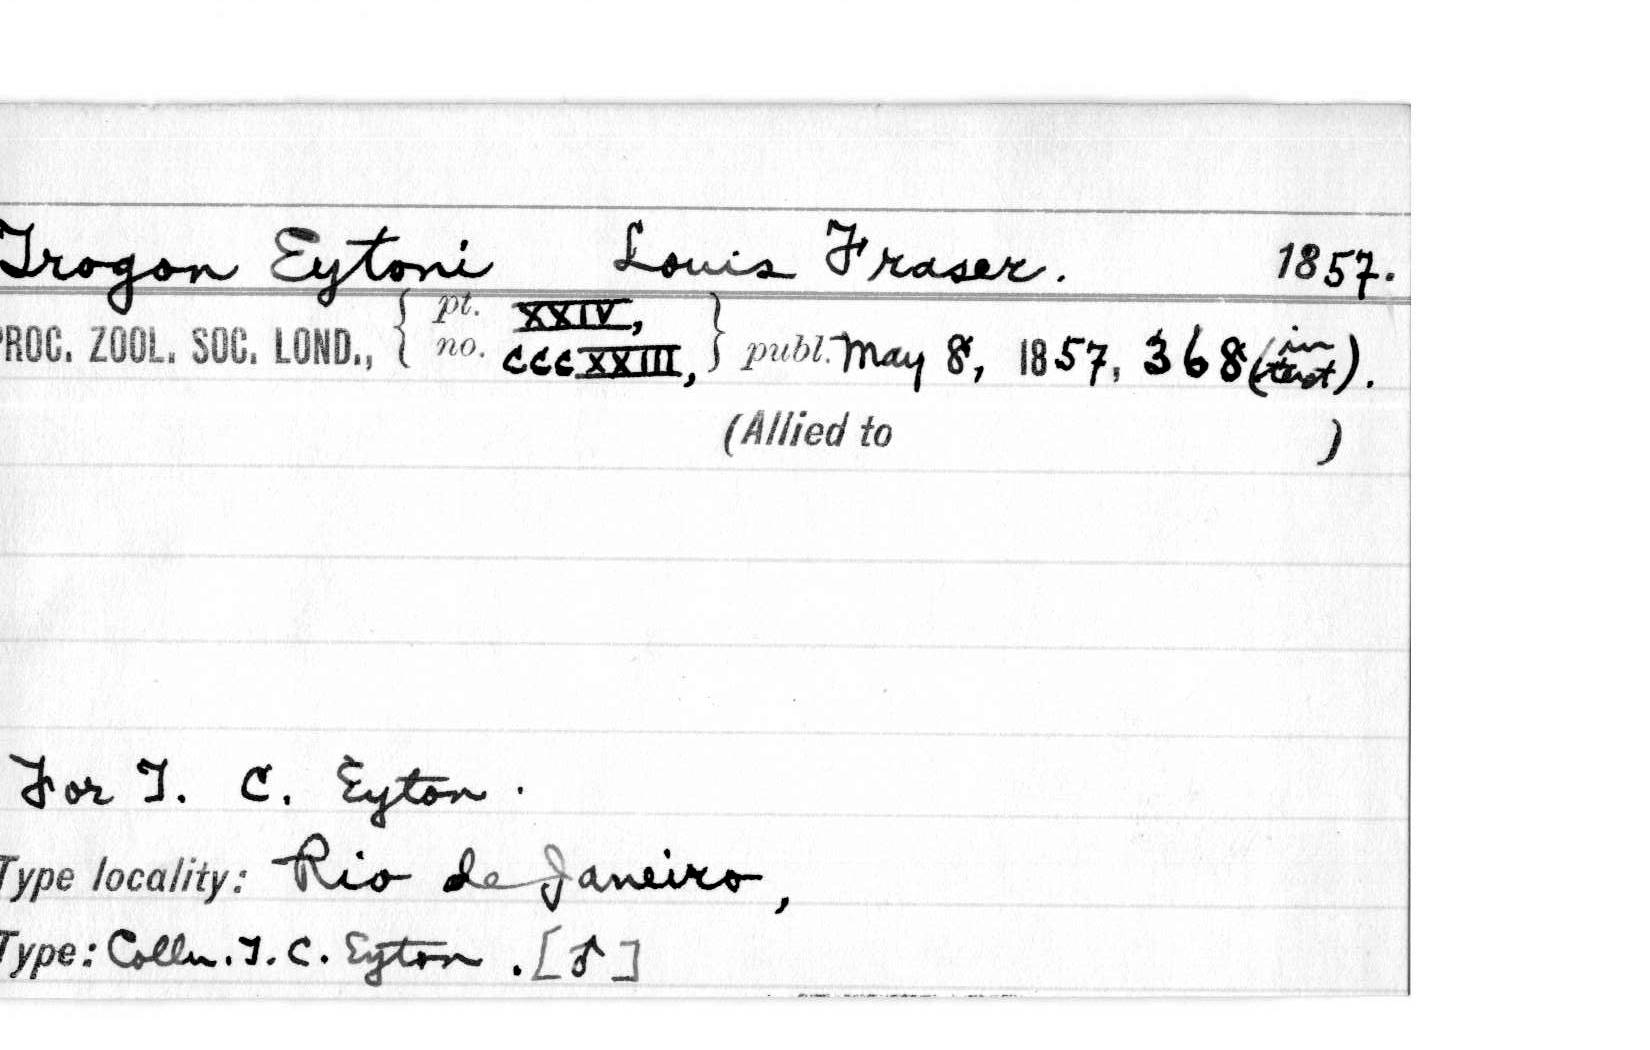 Trogon Eytoni Louis Fraser. 1857.
PROC. ZOOL. SOC. LOND., { pt. XXIV, no. cccXXIII, } publ. May 8, 1857, 368 (in text).
(Allied to )
For T. C. Eyton.
Type locality: Rio de Janeiro,
Type: Colln. T. C. Eyton. [♂]